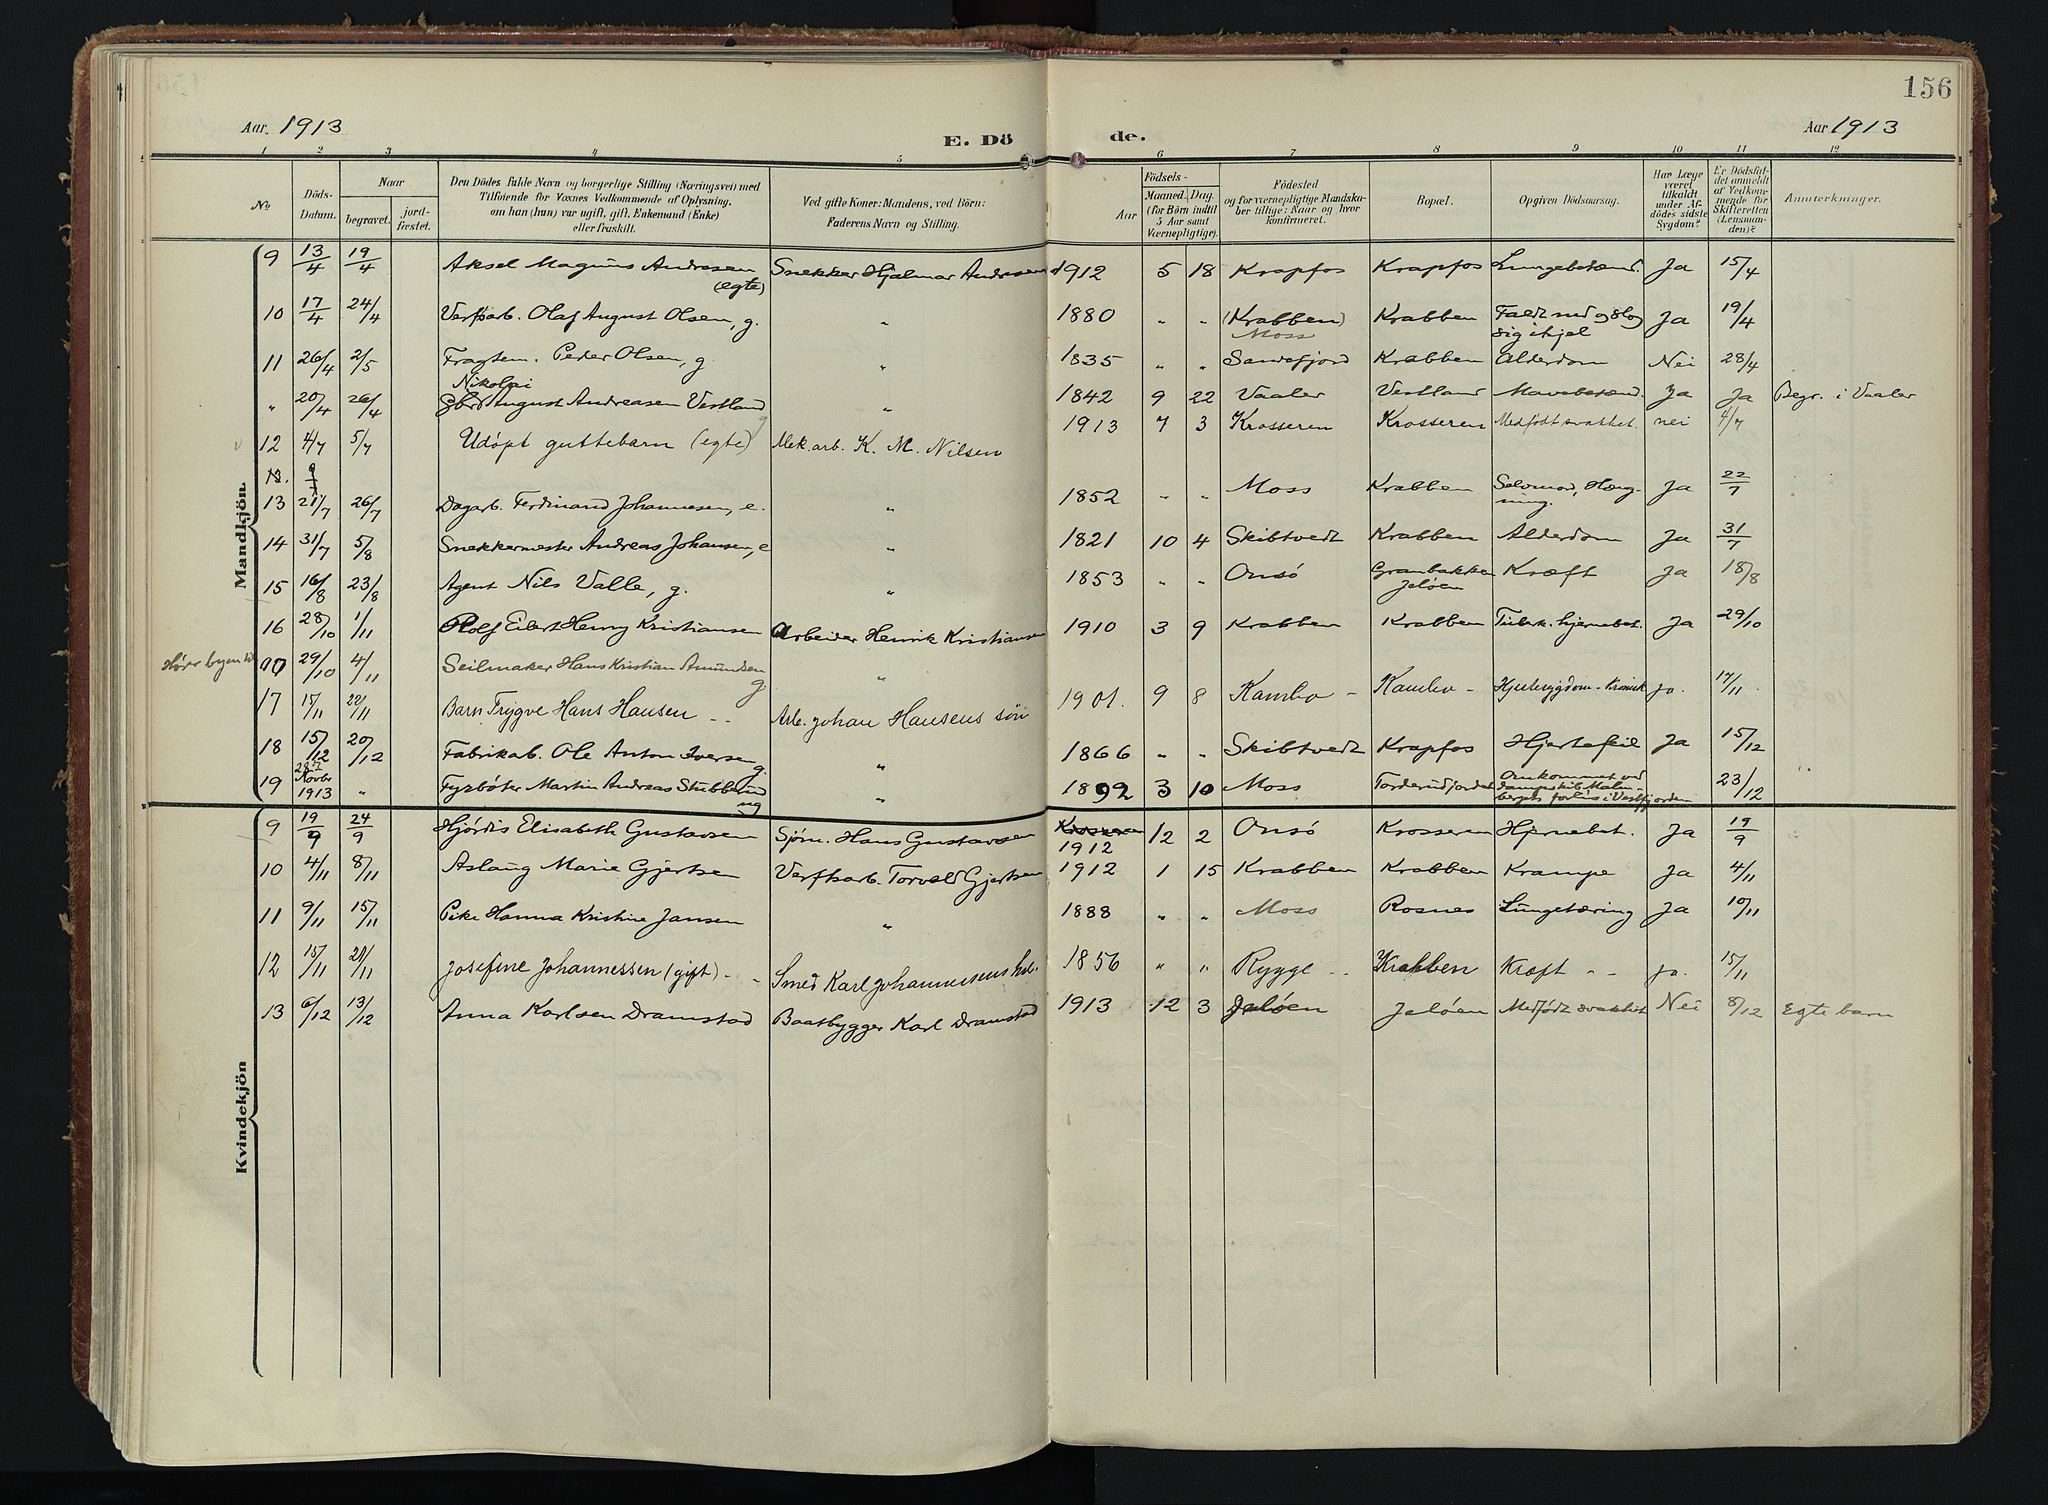 156
Aar. 1913 E. Dö de. Aar 1913
1 2 3 4 5 6 7 8 9 10 11 12
No. Döds-Datum. Naar begravet. jord-fæstet. Den Dödes fulde Navn og borgerlige Stilling (Næringsvei) med Tilföiende for Voxnes Vedkommende af Oplysning, om han (hun) var ugift, gift, Enkemand (Enke) eller fraskilt. Ved gifte Koner: Mandens, ved Börn: Faderens Navn og Stilling. Aar Födsels- Maaned. Dag. (for Börn indtil 5 Aar samt Værnepligtige). Födested og for værnepligtige Mandskaber tillige: Naar og hvor konfirmeret. Bopæl. Opgiven Dödsaarsag. Har Læge været tilkaldt under Afdödes sidste Sygdom? Er Dödsfaldet anmeldt af Vedkommende for Skifteretten (Lensmanden)? Anmerkninger.
Mandkjön.
9 13/4 19/4 Aksel Magnus Andresen (egte) Snekker Hjalmar Andresen 1912 5 18 Krapfos Krapfos Lungebetænd. Ja 15/4
10 17/4 24/4 Verftsarb. Olaf August Olsen, g. " 1880 " " (Krabben) Moss Krabben Faldt ned og slog sig ihjel Ja 19/4
11 26/4 2/5 Fragtem. Peder Olsen, g " 1835 " " Sandefjord Krabben Alderdom Nei 28/4
Nikolai
" 20/4 26/4 August Andreasen Vestland g " 1842 9 22 Vaaler Vestland Mavebetænd. Ja Ja Begr. i Vaaler
12 4/7 5/7 Udöpt guttebarn (egte) Mek. arb. K. M. Nilsen 1913 7 3 Krosseren Krosseren Medfödt svakhet. nei 4/7
13 21/7 26/7 Dagarb. Ferdinand Johannesen, e. " 1852 " " Moss Krabben Selvmord, Hængning. Ja 22/7
14 31/7 5/8 Snekkermester Andreas Johansen, e " 1821 10 4 Skibtvedt Krabben Alderdom Ja 31/7
15 16/8 23/8 Agent Nils Valle, g. " 1853 " " Onsö Granbakken Jelöen Kræft Ja 18/8
16 28/10 1/11 Rolf Eilert Henry Kristiansen Arbeider Henrik Kristiansen 1910 3 9 Krabben Krabben Tuberk. hjernebet. Ja 29/10
Hörer byen til 29/10 4/11 Seilmaker Hans Kristian Amundsen g "
17 17/11 22/11 Barn Trygve Hans Hansen -- Arb. Johan Hansens sön 1901. 9 8 Kambo - Kambo - Hjertesygdom - Kronisk ja. 17/11.
18 15/12 20/12 Fabrikab. Ole Anton Iversen g. " 1866 " " Skibtvedt Krapfos Hjertefeil Ja 15/12
19 Novbr 1913 " Fyrböter Martin Andreas Stubberud ug " 1892 3 10 Moss Torderudjordet Omkommet ved dampskib Malmbergets forlis i Vestfjorden 23/12
Kvindekjön
9 19/9 24/9 Hjördis Elisabeth Gustavsen Sjöm. Hans Gustavsen Krosseren 1912 12 2 Onsö Krosseren Hjernebet. Ja 19/9
10 4/11 8/11 Aslaug Marie Gjertsen Verftsarb. Torvald Gjertsen 1912 1 15 Krabben Krabben Krampe Ja 4/11
11 9/11 15/11 Pike Hanna Kristine Jansen " 1888 " " Moss Rosnes Lungetæring Ja 10/11
12 15/11 21/11 Josefine Johannessen (gift) -- Smed Karl Johannesens hu. 1856 " " Rygge -- Krabben Kræft -- ja. 15/11
13 6/12 13/12 Anna Karlsen Dramstad Baatbygger Karl Dramstad 1913 12 3 Jelöen Jelöen Medfödt svakhet Nei 8/12 Egte barn